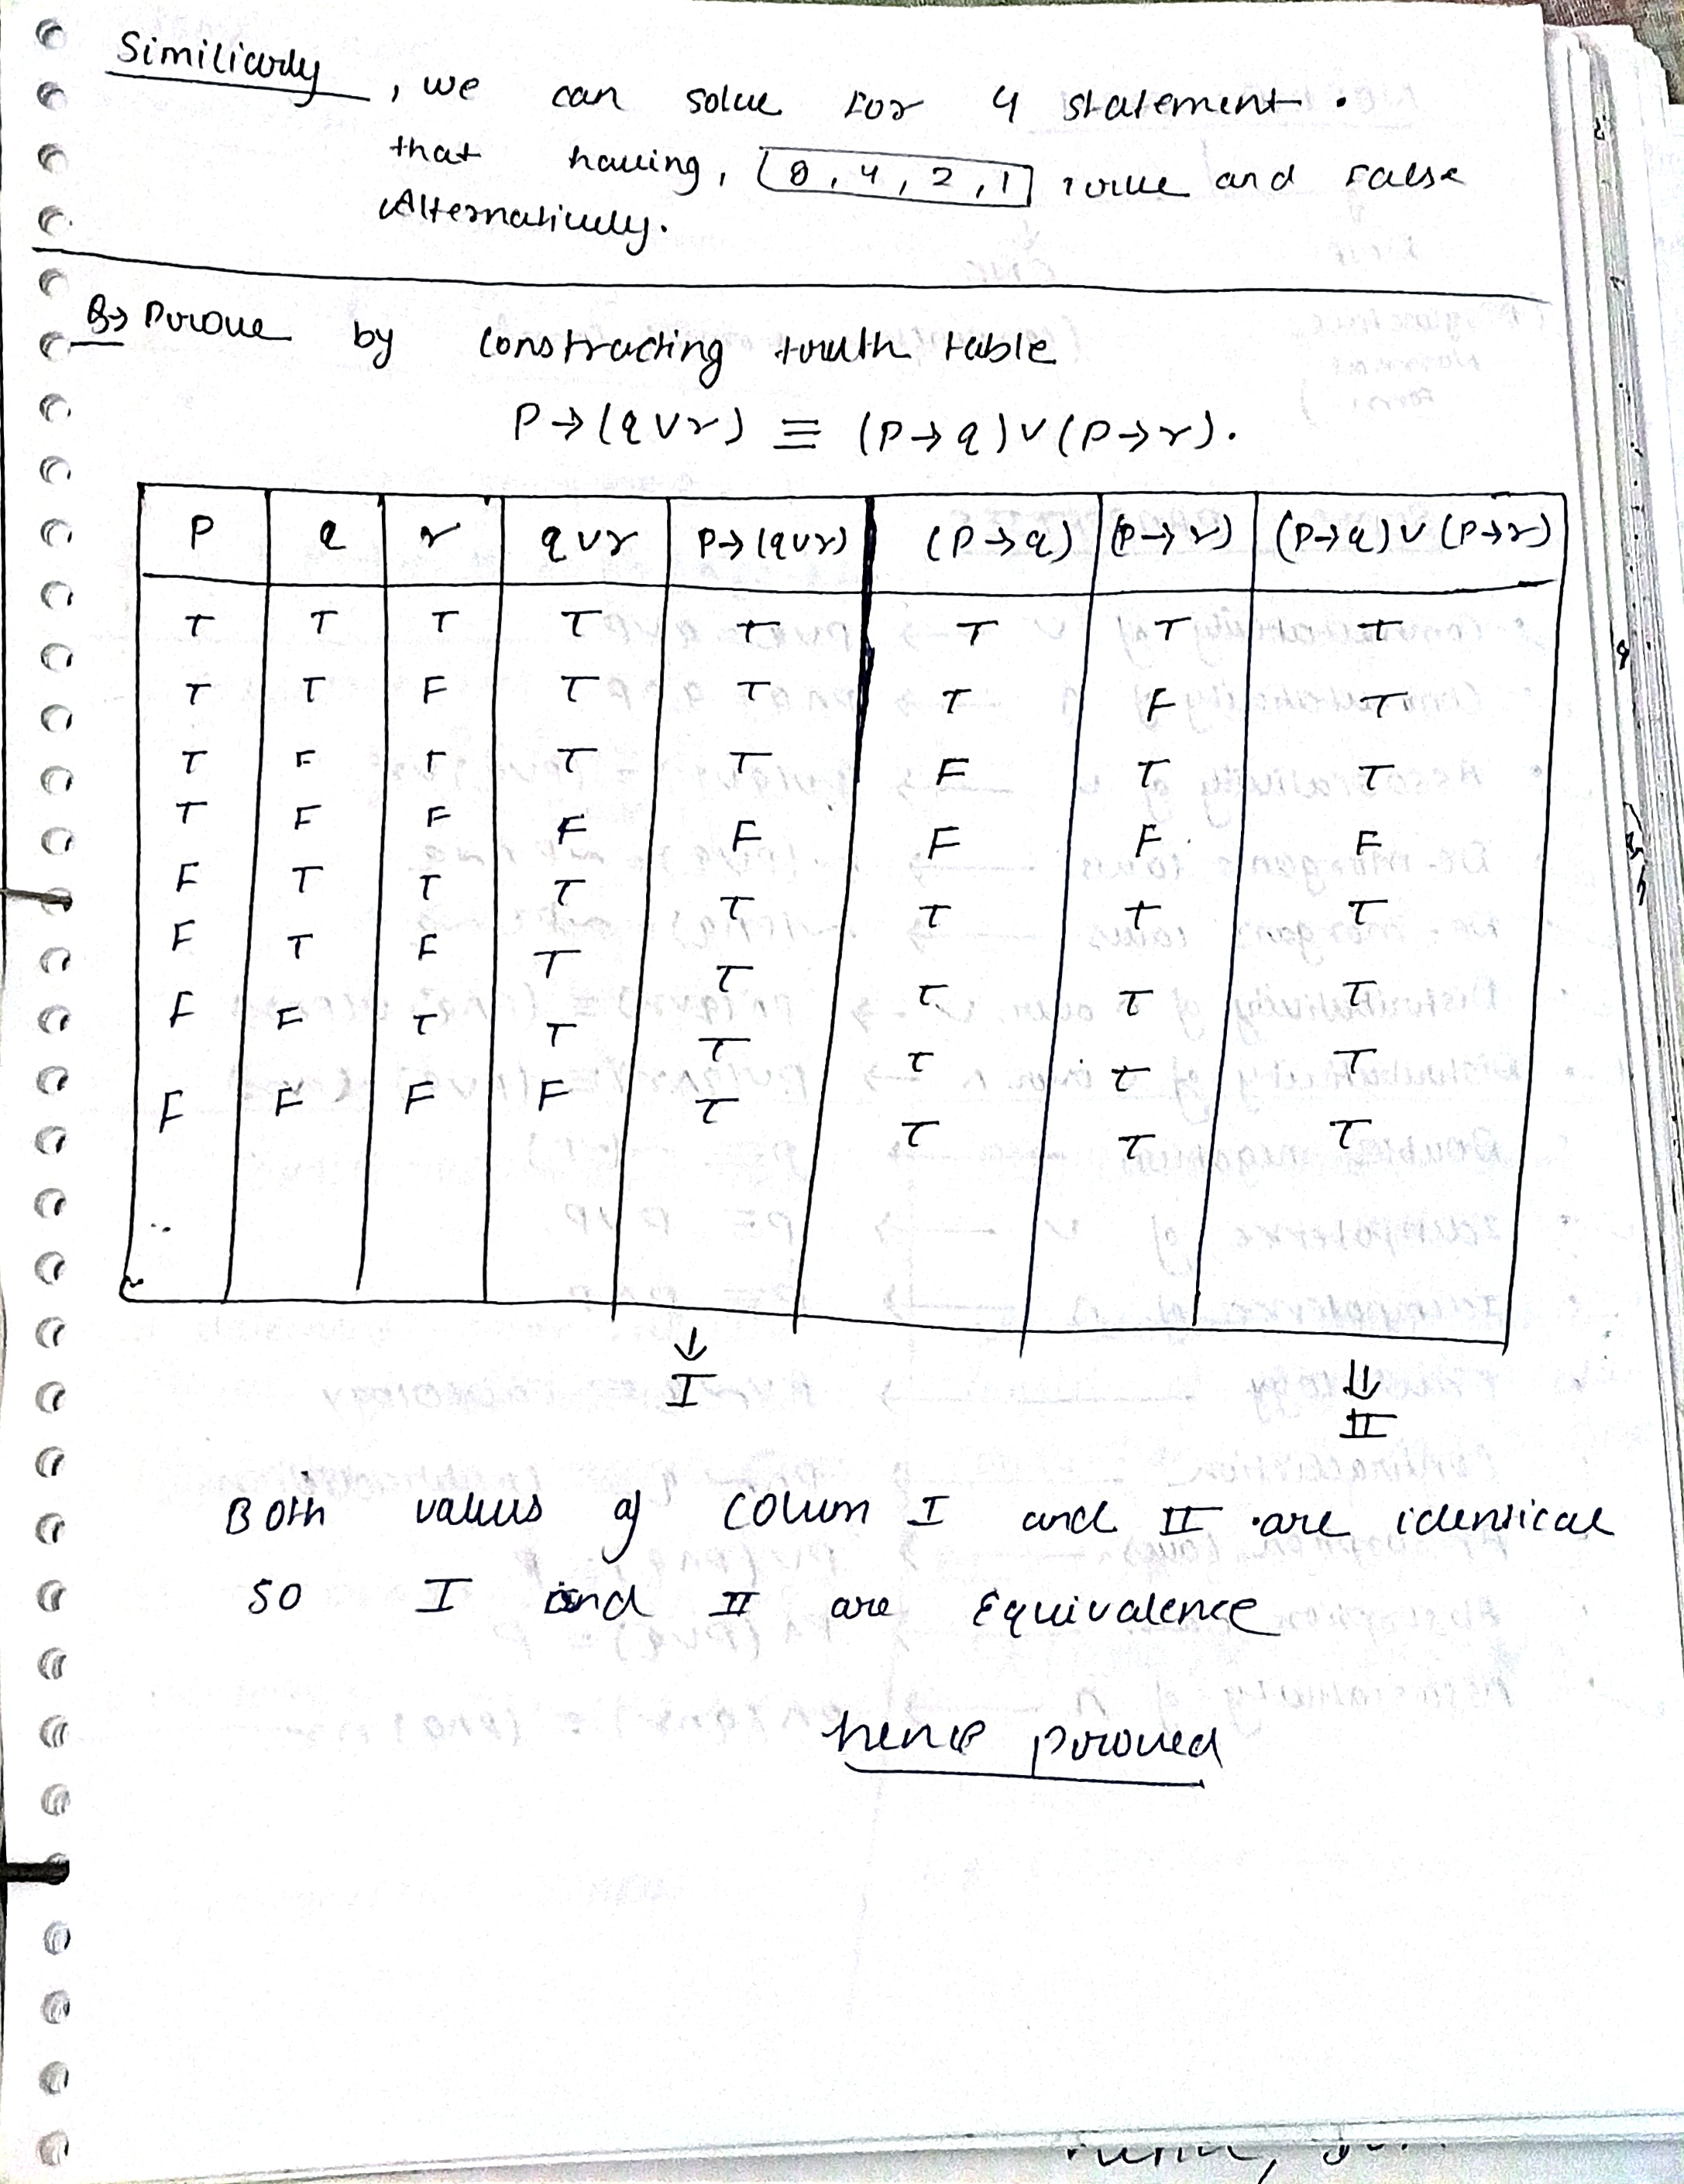 Similiarly, we can solve for 4 statement.
that having, 8, 4, 2, 1 true and False
Alternatively.
Q→ Prove by constructing truth table
P→(q∨r) ≡ (P→q)∨(P→r).
P q r q∨r P→(q∨r) (P→q) (P→r) (P→q)∨(P→r)
T T T T T T T T
T T F T T T F T
T F T T T F T T
T F F F F F F F
F T T T T T T T
F T F T T T T T
F F T T T T T T
F F F F T T T T
↓ ⇓
I II
Both values of Colum I and II are identical
so I and II are Equivalence
hence proved